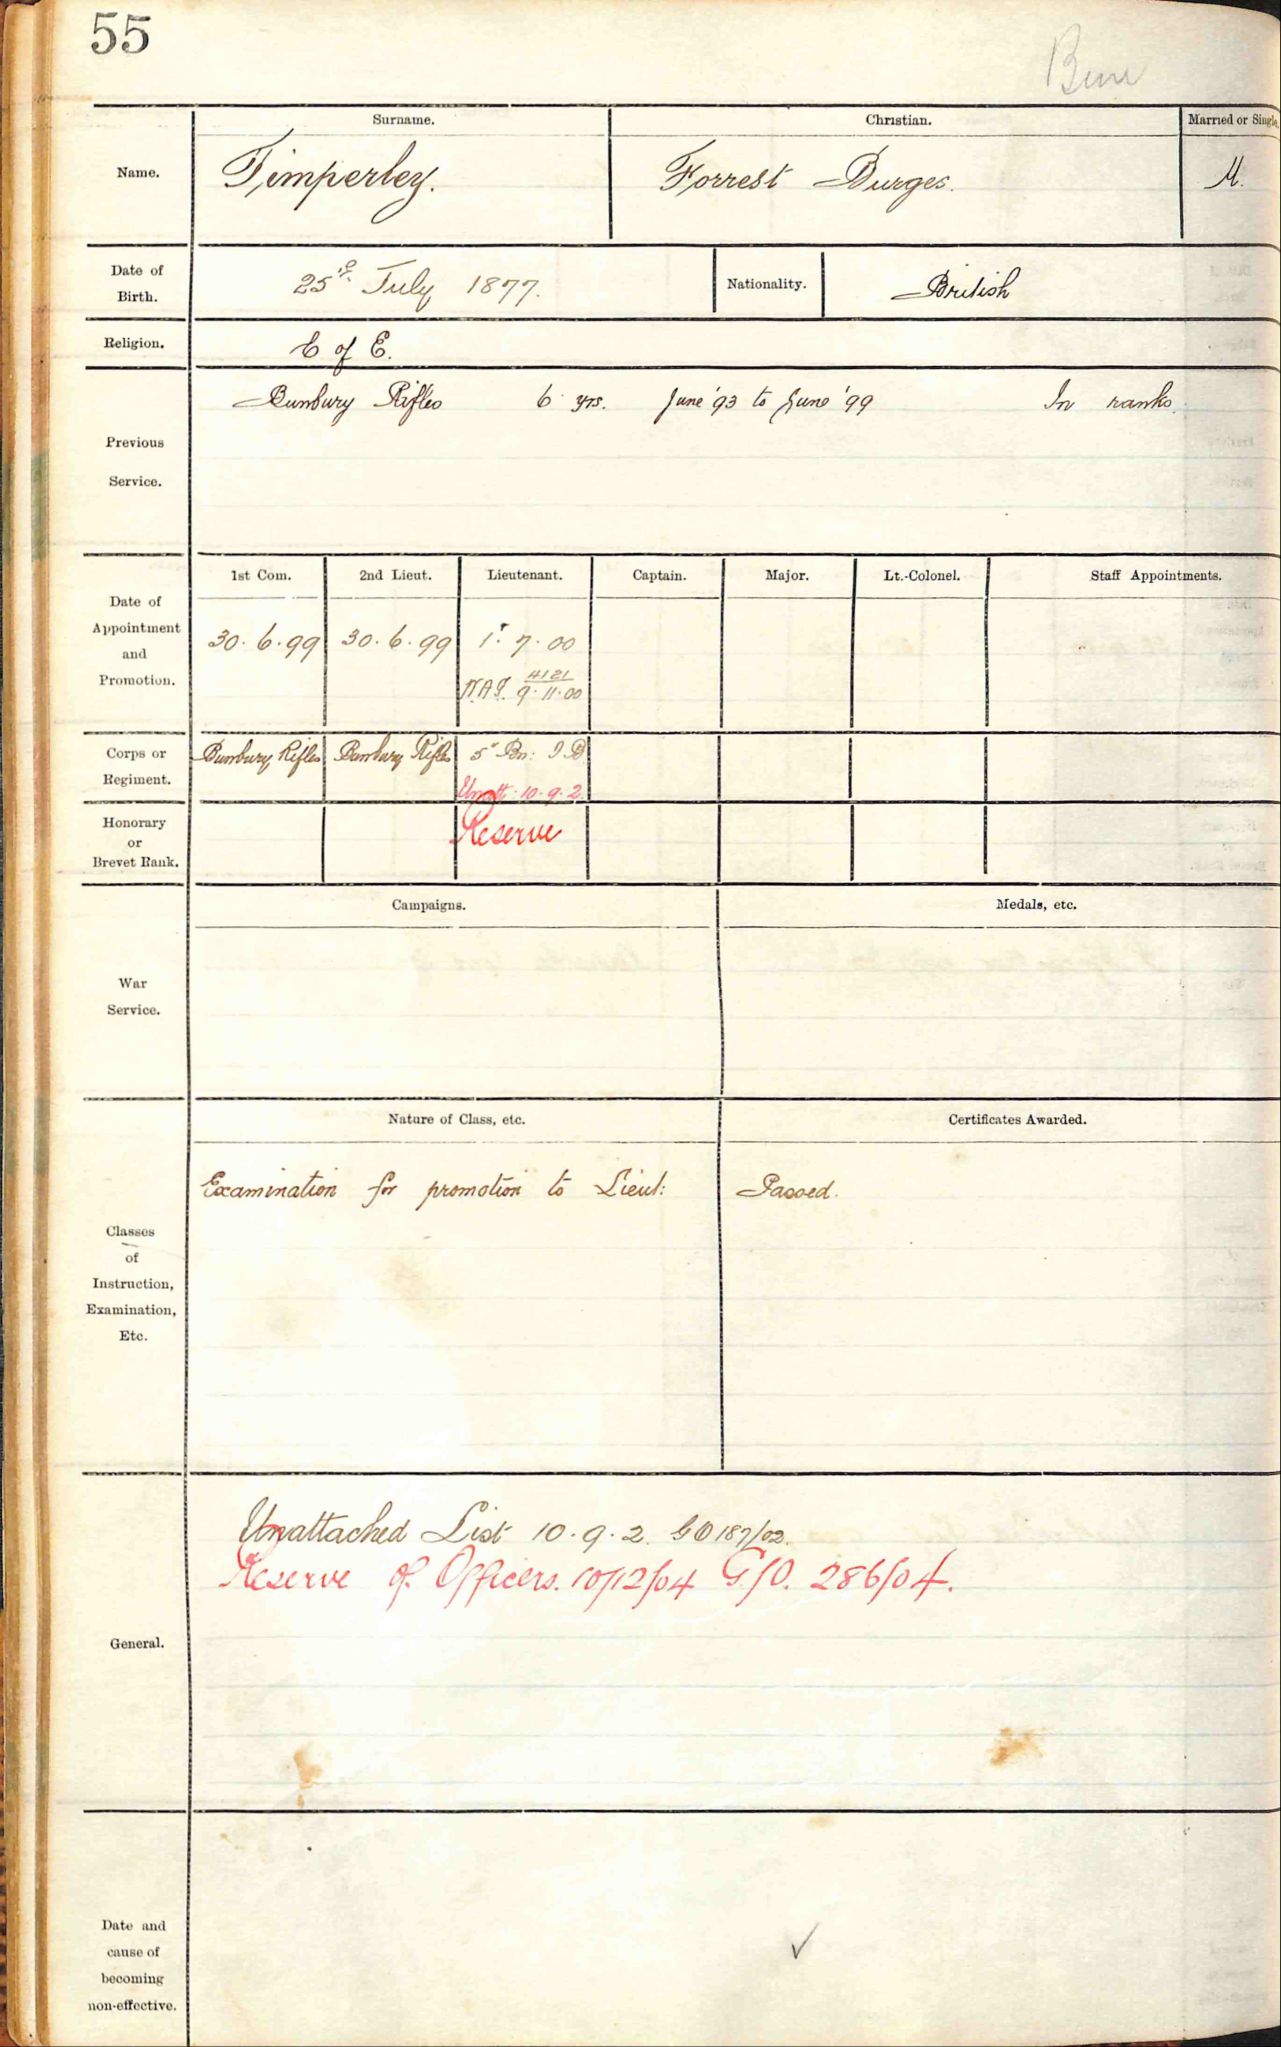 55
Surname. Christian. Married or Single
Name. Timperley. Forrest Burges. M.
Date of
Birth. 25th July 1877. Nationality. British
Religion. C of E.
Bunbury Rifles 6 yrs. June '93 to June '99 In ranks.
Previous
Service.
1st Com. 2nd Lieut. Lieutenant. Captain. Major. Lt.-Colonel. Staff Appointments.
Date of
Appointment
and
Promotion.
30.6.99 30.6.99 1.7.00
4121
9.11.00
Corps or
Regiment.
Bunbury Rifles Bunbury Rifles 5th Bn: I B
Unatt: 10.9.2.
Honorary
or
Brevet Rank.
Reserve
Campaigns. Medals, etc.
War
Service.
Nature of Class, etc. Certificates Awarded.
Examination for promotion to Lieut: Passed.
Classes
of
Instruction,
Examination,
Etc.
Unattached List 10.9.2. G O 187/02.
Reserve of Officers. 10/12/04 G/O. 286/04.
General.
Date and
cause of
becoming
non-effective.